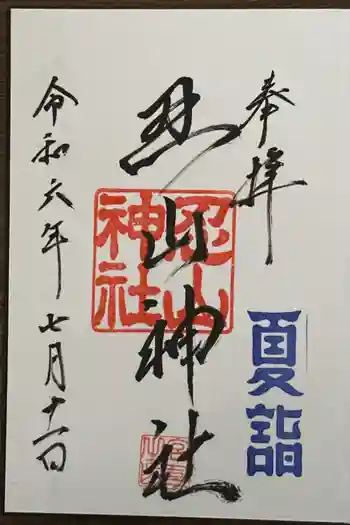 奉拝
夏詣
忍山神社
忍山
神社
令和六年七月十一日